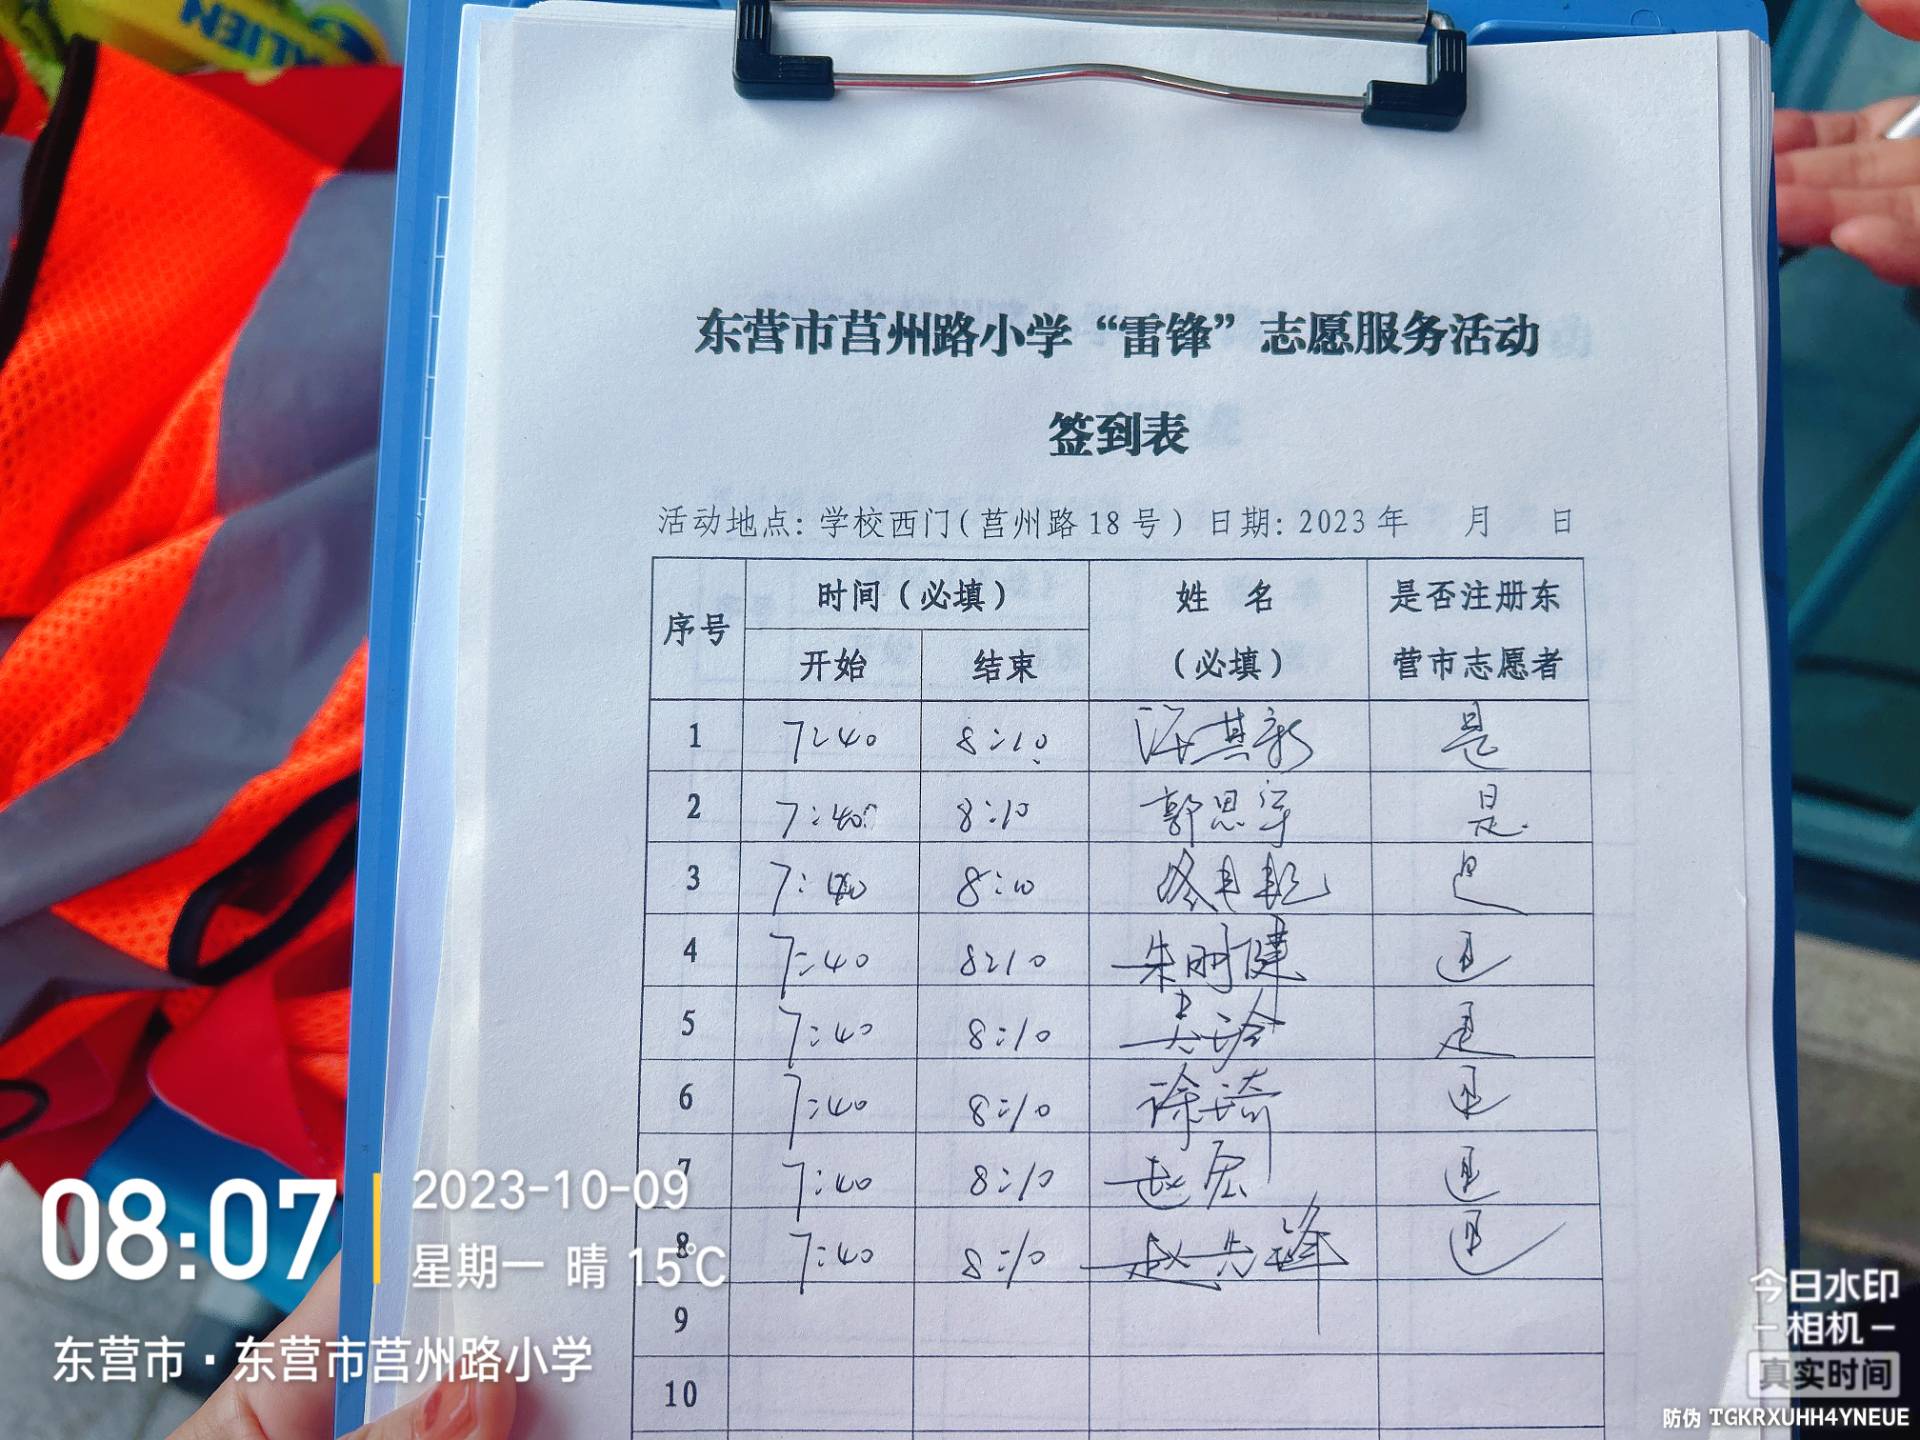 ALIEN
东营市莒州路小学“雷锋”志愿服务活动
签到表
活动地点：学校西门（莒州路18号）日期：2023年 月 日
序号 时间（必填） 姓 名 是否注册东
开始 结束 （必填） 营市志愿者
1 7:40 8:10 是
2 7:40 8:10 郭思军 是
3 7:40 8:10 是
4 7:40 8:10 朱明健 是
5 7:40 8:10 是
6 7:40 8:10 徐琦 是
7 7:40 8:10 赵宏 是
8 7:40 8:10 赵先锋 是
9
10
08:07
2023-10-09
星期一 晴 15℃
东营市·东营市莒州路小学
今日水印
相机
真实时间
防伪 TGKRXUHH4YNEUE